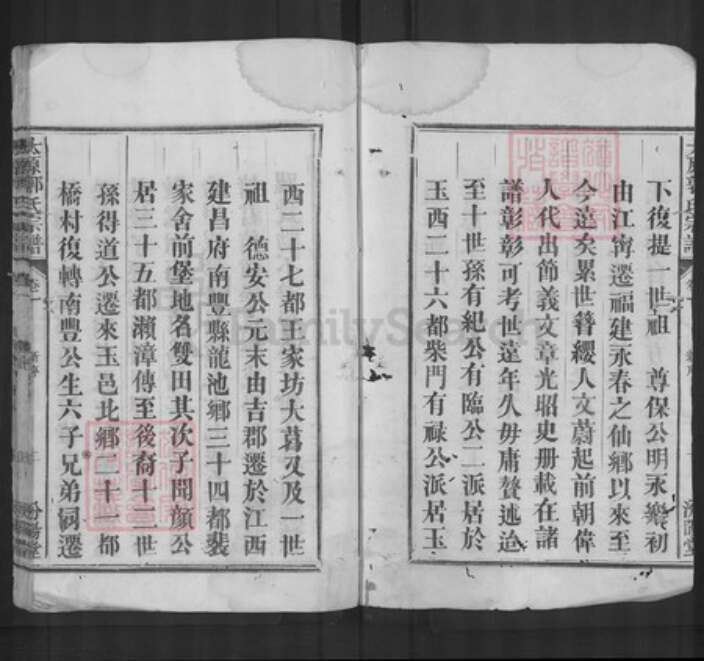 下復提一世祖　尊保公明永樂初
由江甯遷福建永春之仙鄉以來至
今遠矣累世簪纓人文蔚起前朝偉
人代出節義文章光昭史册載在諸
譜彰彰可考世遠年久毋庸贅述迨
至十世孫有紀公有臨公二派居於
玉西二十六都柴門有祿公派居玉
太原郭氏宗譜
卷一
汾陽堂
西二十七都王家坊大葛及及一世
祖　德安公元末由吉郡遷於江西
建昌府南豐縣龍池鄉三十四都裴
家舍前堡地名雙田其次子聞顏公
居三十五都瀨漳傳至後裔十二世
孫得道公遷來玉邑北鄉二十一都
橋村復轉南豐公生六子兄弟嗣遷
太原郭氏宗譜
卷一
汾陽堂
FamilySearch